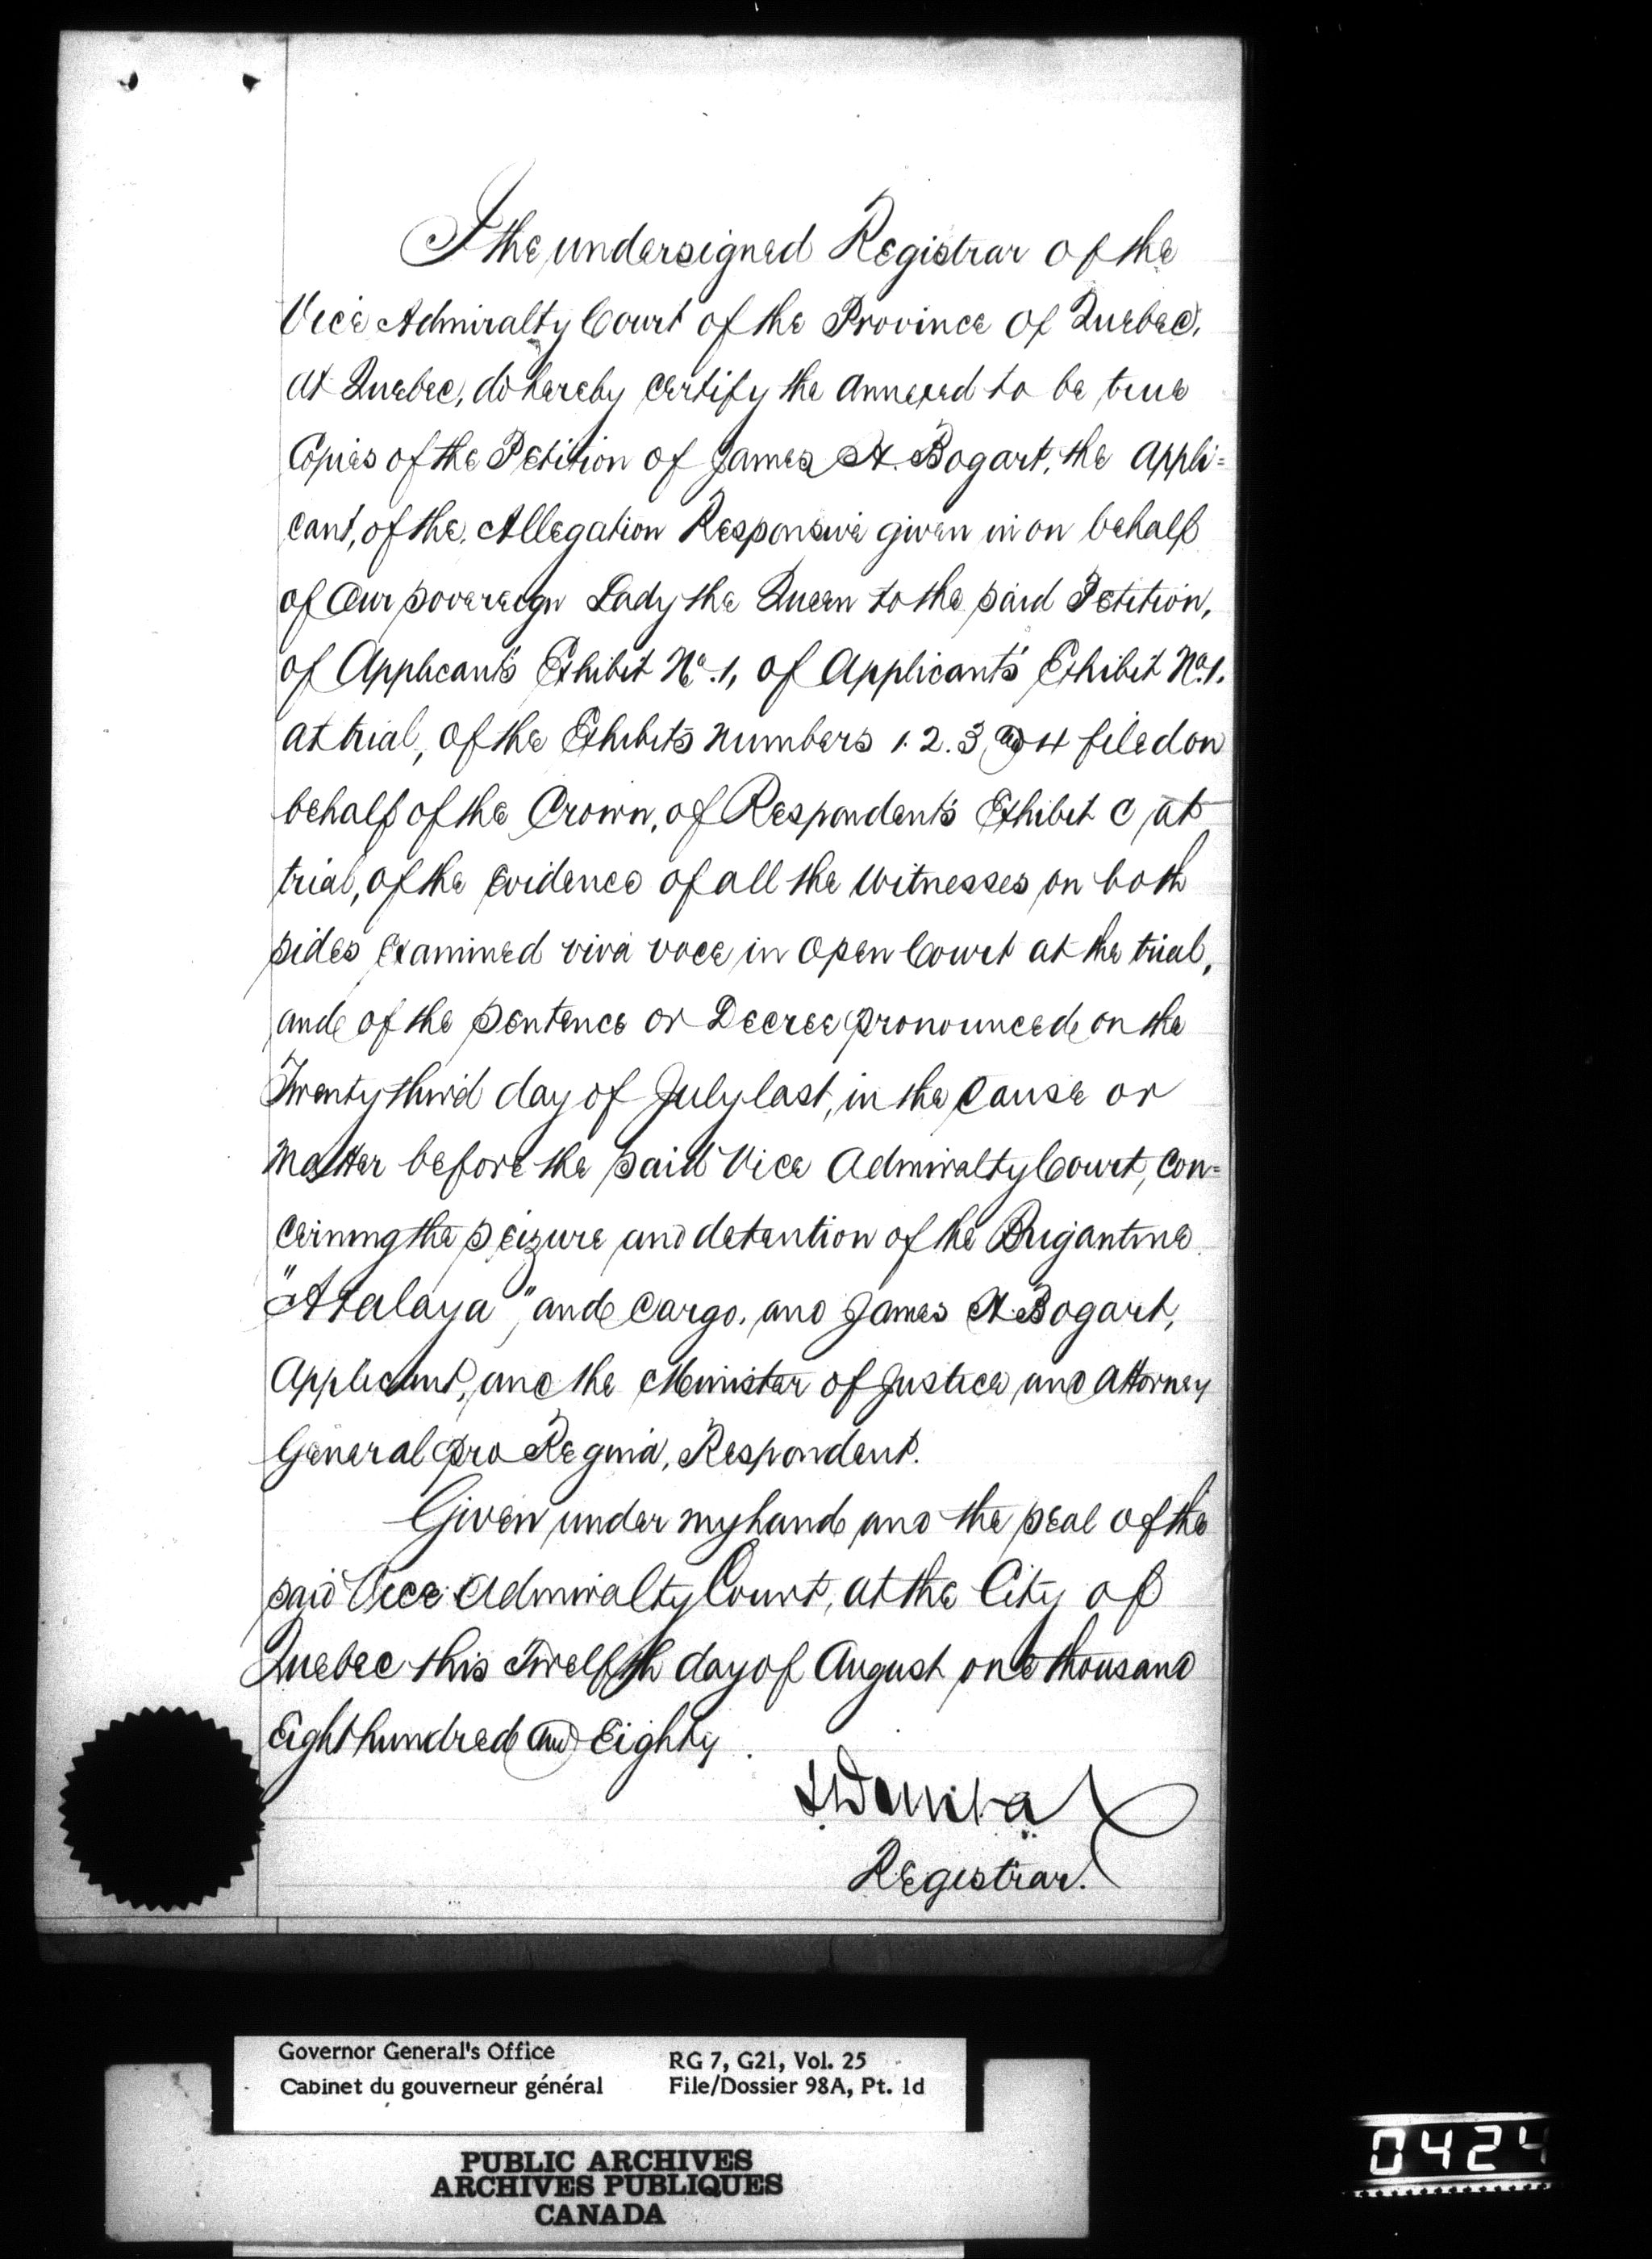 I the undersigned Registrar of the
Vice Admiralty Court of the Province of Quebec,
at Quebec, do hereby certify the annexed to be true
Copies of the Petition of James A. Bogart, the appli=
cant, of the Allegation Responsive given in on behalf
of Our Sovereign Lady the Queen to the said Petition,
of Applicant's Exhibit No. 1, of Applicant's Exhibit No. 1.
at trial, of the Exhibits numbers 1. 2. 3 and 4 filed on
behalf of the Crown, of Respondent's Exhibit C at
trial, of the evidence of all the witnesses on both
sides examined viva voce in open Court at the trial,
and of the Sentence or Decree pronounced on the
Twenty third day of July last, in the cause or
matter before the said Vice Admiralty Court, con=
cerning the seizure and detention of the Brigantine
"Atalaya" and cargo, and James A. Bogart,
Applicant, and the Minister of Justice and Attorney
General pro Regina, Respondent.
Given under my hand and the seal of the
said Vice Admiralty Court, at the City of
Quebec this Twelfth day of August one thousand
Eight hundred and Eighty.
Registrar.
Governor General's Office
Cabinet du gouverneur général
RG 7, G21, Vol. 25
File/Dossier 98A, Pt. 1d
PUBLIC ARCHIVES
ARCHIVES PUBLIQUES
CANADA
0424